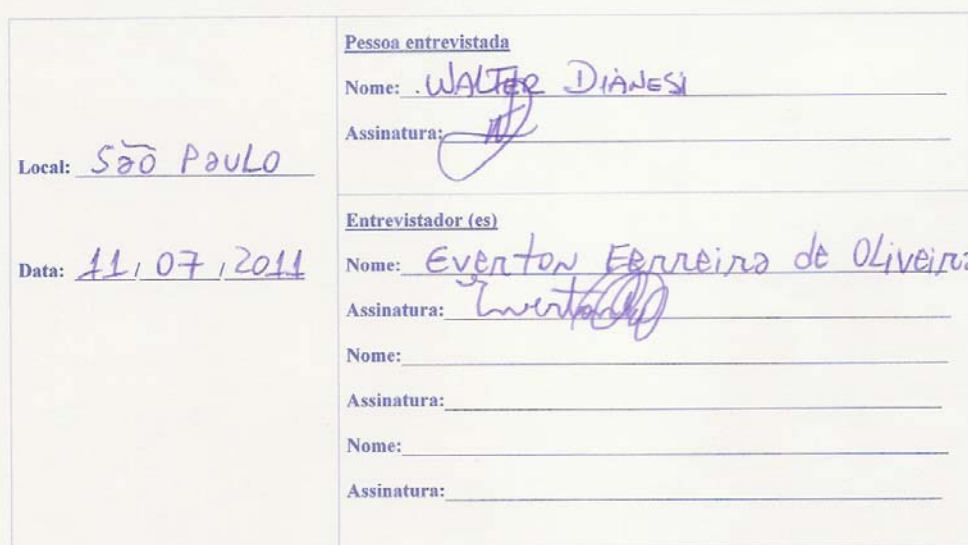 Local: São Paulo
Data: 11/07/2011
Pessoa entrevistada
Nome: WALTER DIANESI
Assinatura:
Entrevistador (es)
Nome: Everton Ferreira de Oliveira
Assinatura: Everton
Nome:
Assinatura:
Nome:
Assinatura: